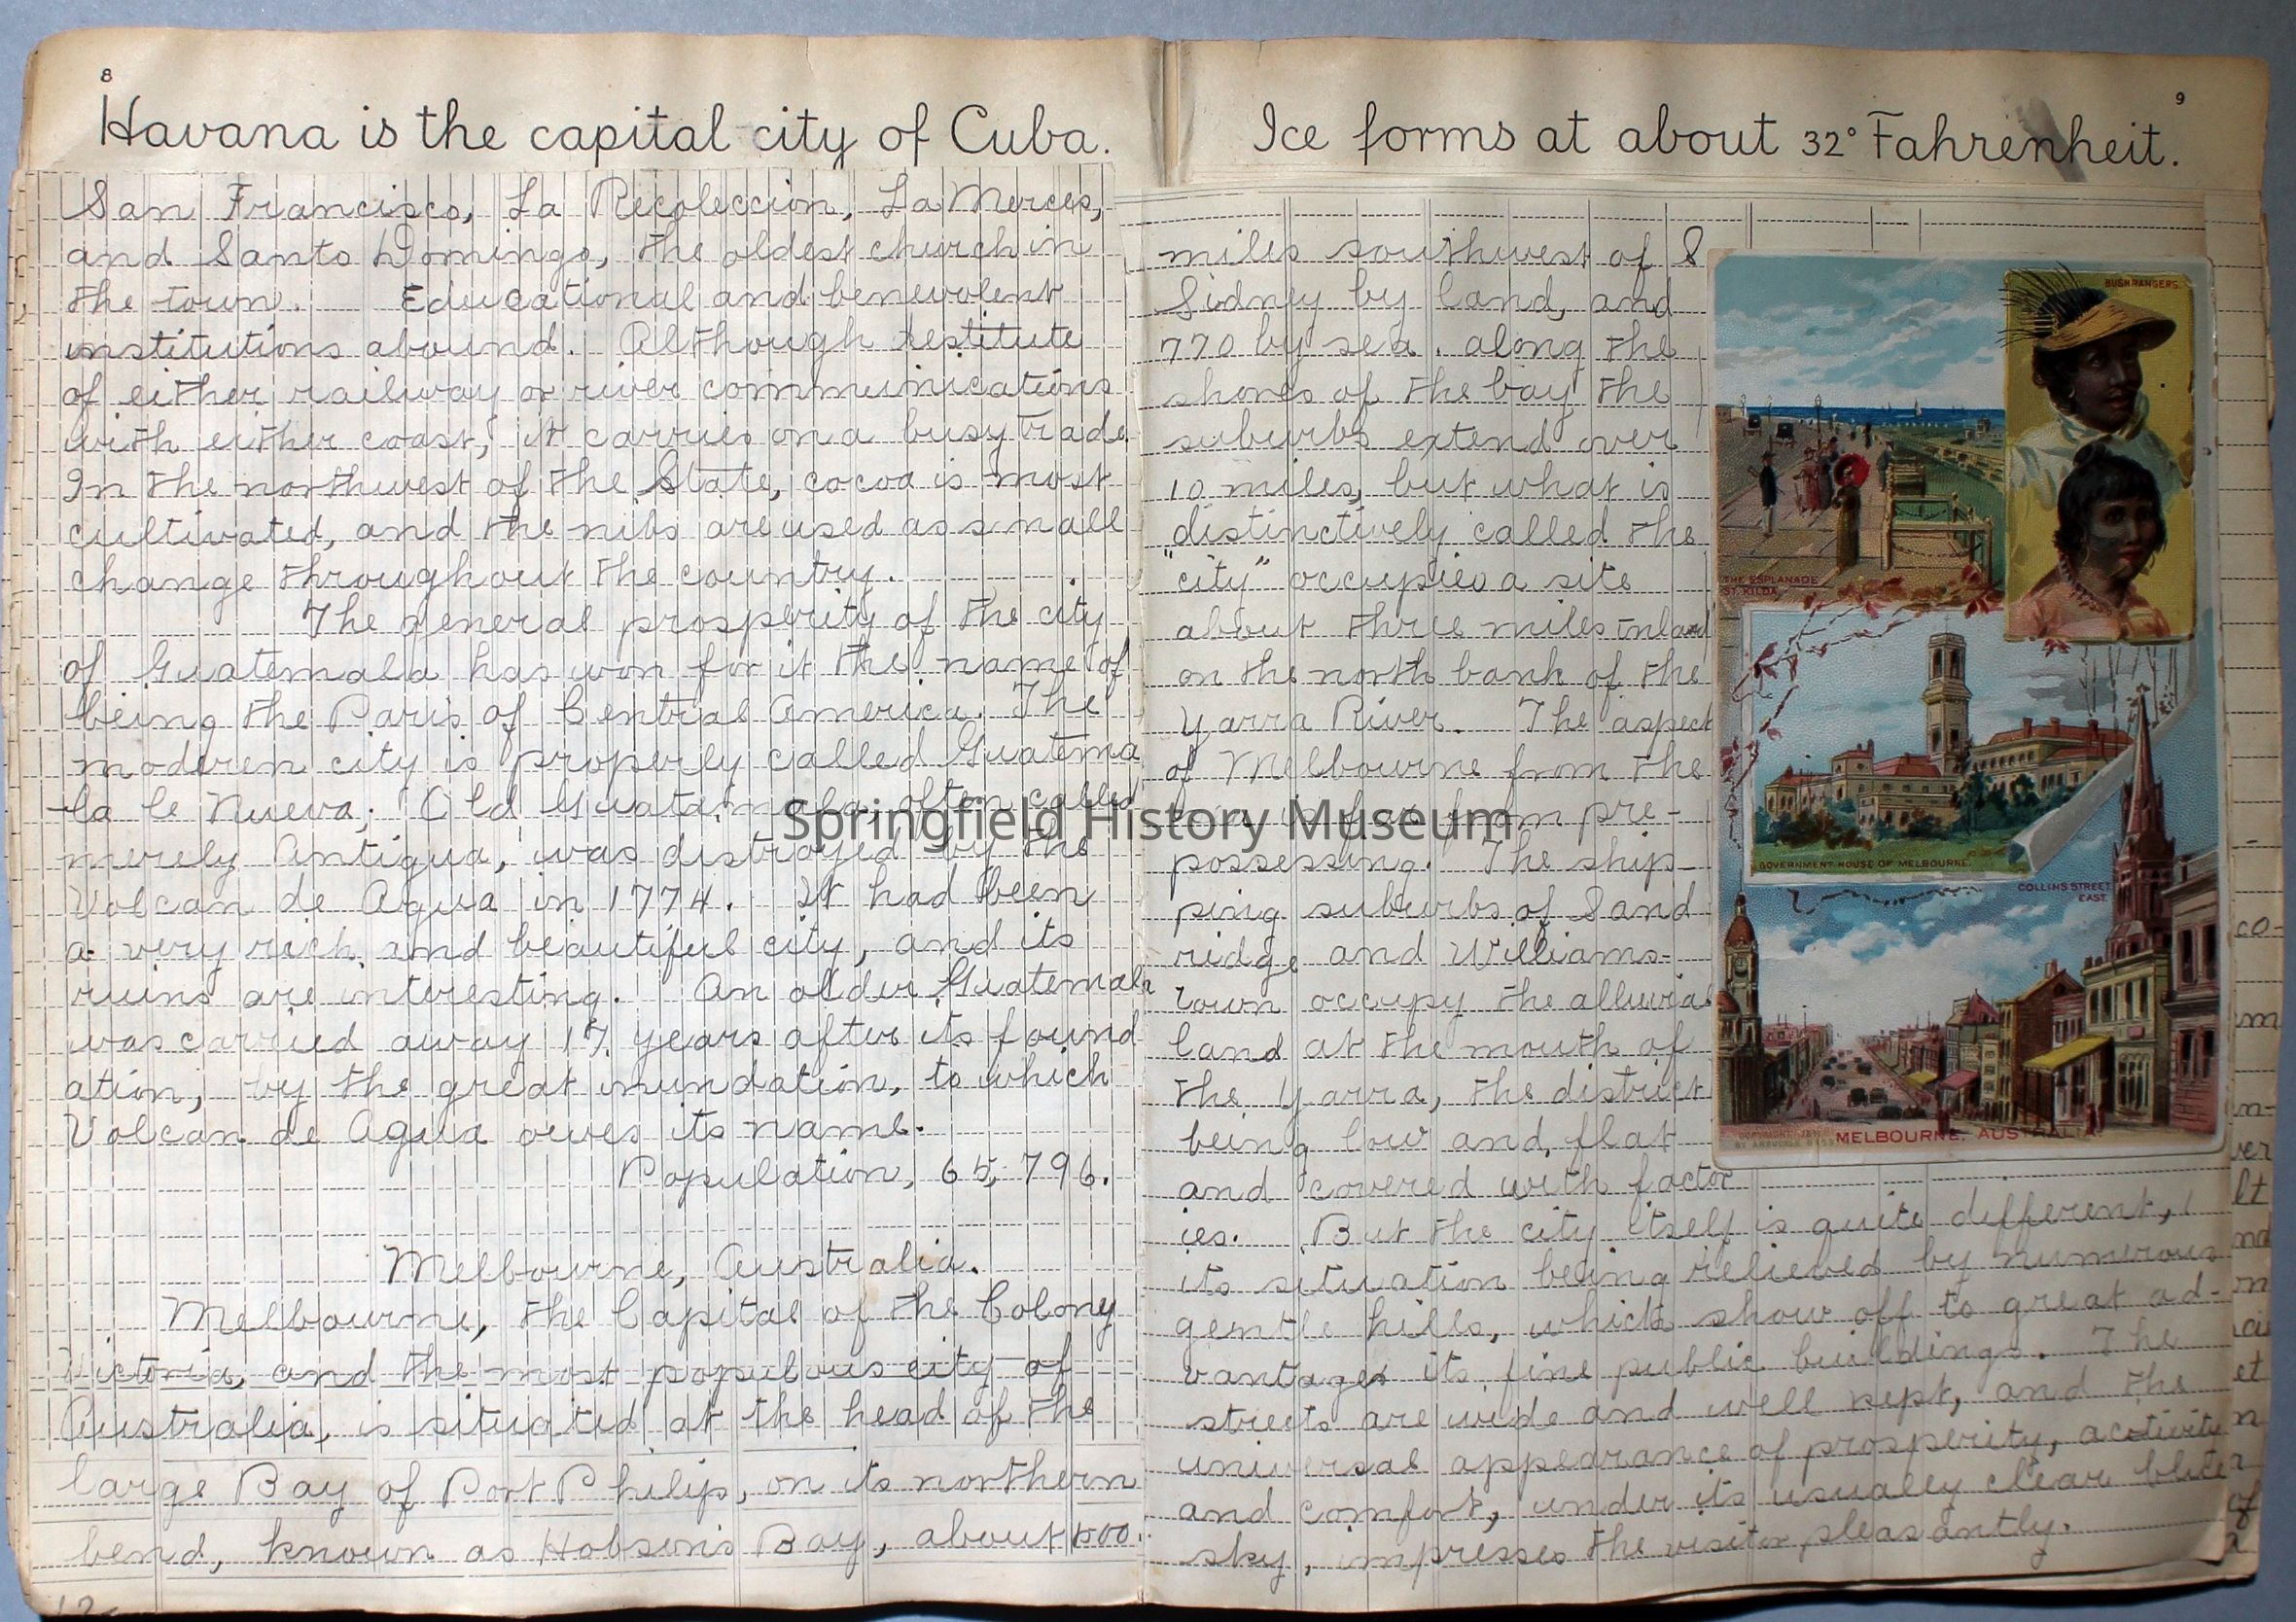 8
Havana is the capital city of Cuba.
San Francisco, La Recoleccion, La Merces,
and Santo Domingo, the oldest church in
the town. Educational and benevolent
institutions abound. Although destitute
of either railway or river communications
with either coast, it carries on a busy trade.
In the northwest of the State, cocoa is most
cultivated, and the nibs are used as small
change throughout the country.
The general prosperity of the city
of Guatemala has won for it the name of
being the Paris of Central America. The
moderen city is properly called Guatema
la le Nueva; Old Guatemala, often called
merely Antigua, was distroyed by the
Volcan de Agua in 1774. It had been
a very rich and beautiful city, and its
ruins are interesting. An older Guatemala
was carried away 17 years after its found
ation, by the great inundation, to which
Volcan de Agua owes its name.
Population, 65,796.
Melbourne, Australia.
Melbourne, the Capital of the Colony
Victoria, and the most populous city of
Australia, is situated at the head of the
large Bay of Port Philip, on its northern
bend, known as Hobson's Bay, about 500.
9
Ice forms at about 32° Fahrenheit.
miles southwest of S
Sidney by land, and
770 by sea. along the
shores of the bay the
suburbs extend over
10 miles, but what is
distinctively called the
"city" occupies a site
about three miles inland
on the north bank of the
Yarra River. The aspect
of Melbourne from the
sea is far from pre-
possessing. The ship-
ping suburbs of Sand
ridge and Williams-
town occupy the alluvial
land at the mouth of
the Yarra, the district
being low and, flat
and covered with factor
ies. But the city itself is quite different,
its situation being relieved by numerous
gentle hills, which show off to great ad-
vantages its fine public buildings. The
streets are wide and well kept, and the
universal appearance of prosperity, activity
and comfort, under its usually clear blue
sky, impresses the visitor pleasantly.
BUSHRANGERS.
THE ESPLANADE
ST. KILDA.
GOVERNMENT HOUSE OF MELBOURNE.
COLLINS STREET
EAST.
MELBOURNE, AUSTRALIA.
Springfield History Museum